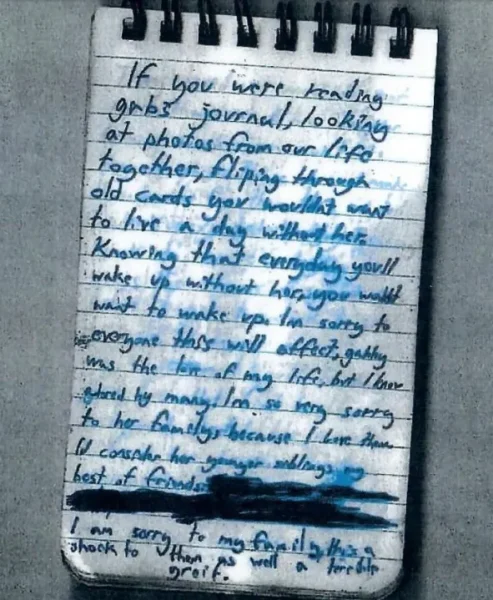 If you were reading
gabs journal, looking
at photos from our life
together, fliping through
old cards you wouldnt want
to live a day without her.
Knowing that everyday you'll
wake up without her, you wouldnt
want to wake up. I'm sorry to
everyone this will affect, gabby
was the love of my life, but I know
adored by many. I'm so very sorry
to her familys because I love them
I'd consider her younger siblings my
best of friends.
I am sorry to my family, this is a
shock to them as well a terrible
greif.